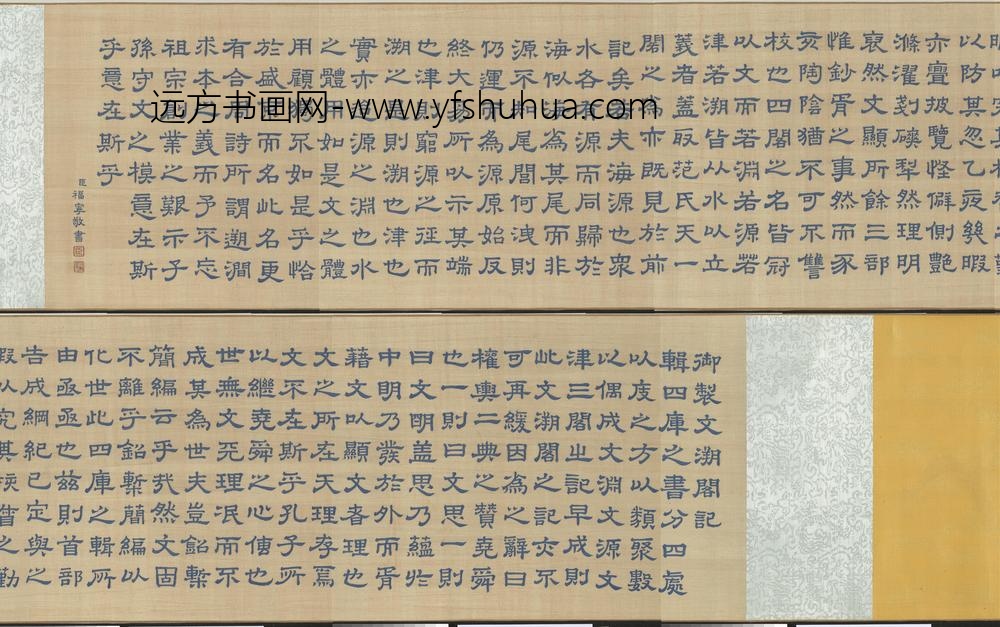 御製文溯閣記
輯四庫之書分四處
以度之方以類聚數
以偶成文淵文源文
津三閣之記早成則
此文溯閣之記亦不
可再緩因為之辭曰
權輿二典之贊堯舜
也一則曰文思一則
曰文明蓋思乃蘊於
中明乃發於外而胥
藉文以顯文者理也
文之所在天理存焉
文不在斯乎孔子所
以繼堯舜之心傳也
世無文兂理泯而不
成其為世夫豈鉛槧
簡編云乎㢤然文固
不離乎鉛槧簡編以
化世此四庫之輯所
由亟亟也兹則首部
告成綱紀已定與之
以防其忽乙夜幾暇
亦亶披覽怪僻側艷
滌濯剗磢犁然理明
裒然文顯所餘三部
惟鈔胥之事然而豕
亥陶陰猶不可不讐
校也四閣之名皆冠
以文而若淵若源若
津若溯皆以水以立
義者蓋取范氏天一
閣之為亦既見於前
記矣若夫海源也衆
水各有源而同歸於
海似海為其尾而非
源不知尾閭何洩則
仍運而為源原始反
終大易所以示其端
也津則窮源之徑而
溯之是則溯也津也
實亦迨源之淵也水
之體用如是文之體
用顧豈不如是乎恰
於盛京而名此名更
有合周詩所謂遡澗
求本之義而予不忘
祖宗創業之艱示子
孫守文之模意在斯
乎意在斯乎
臣福寧敬書
远方书画网-www.yfshuhua.com